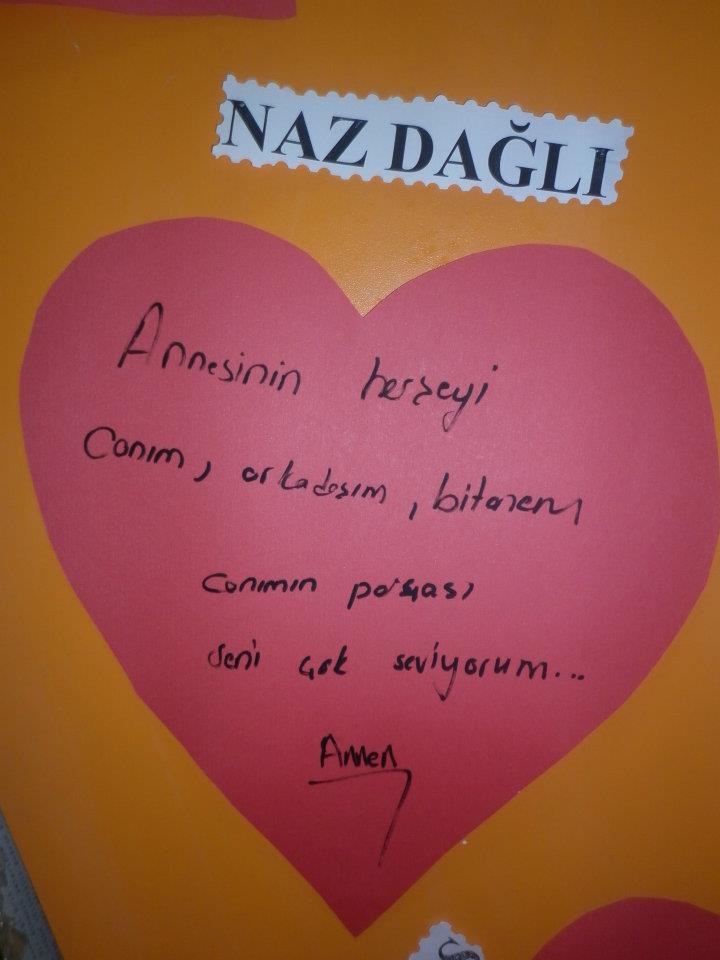 NAZ DAĞLI
Annesinin herşeyi
Canım, arkadaşım, bitanem
Canımın parçası
Seni çok seviyorum...
Annen